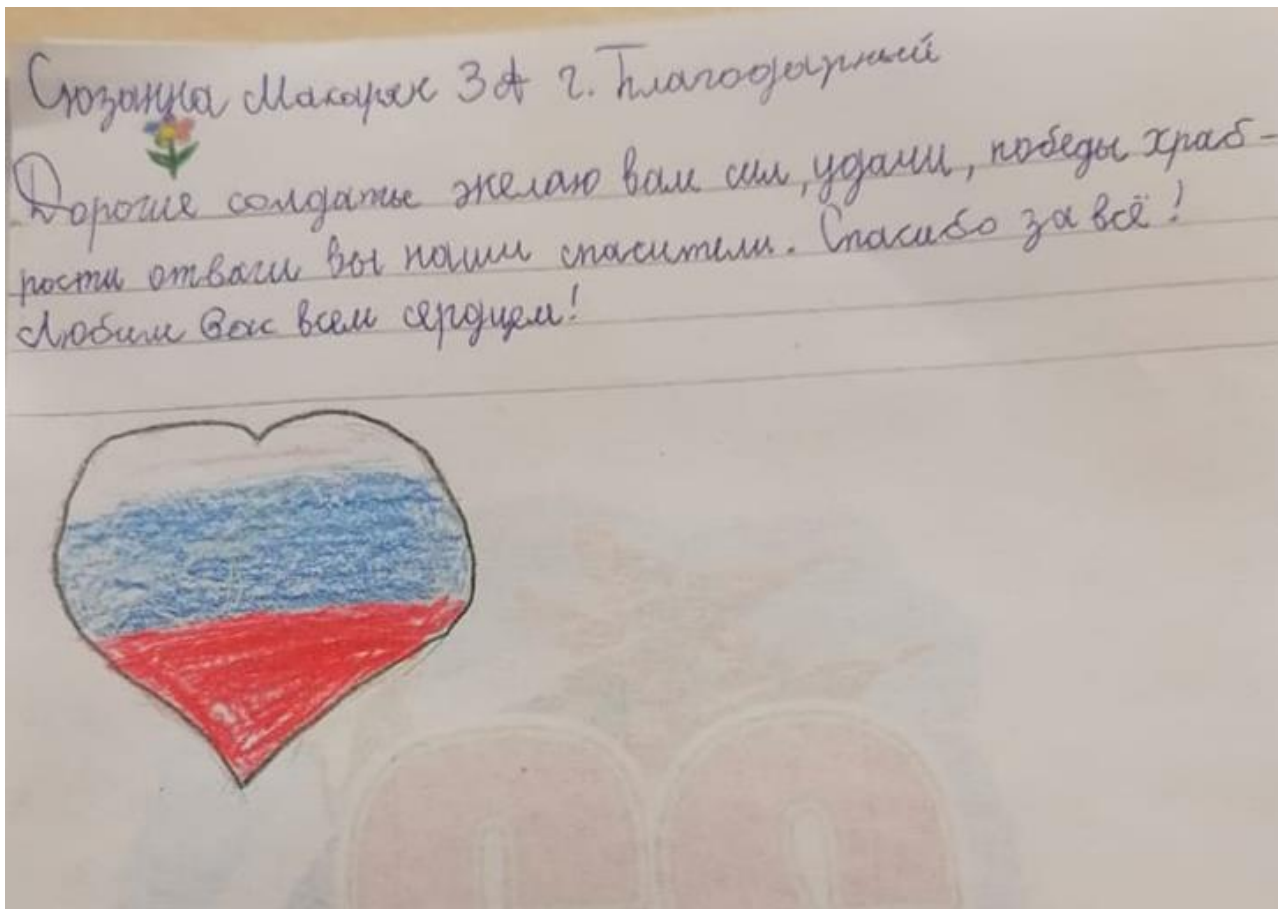 Сюзанна Макарян 3А г. Благодарный
Дорогие солдаты желаю вам сил, удачи, победы храб-
рости отваги вы наши спасители. Спасибо за всё!
Любим Вас всем сердцем!